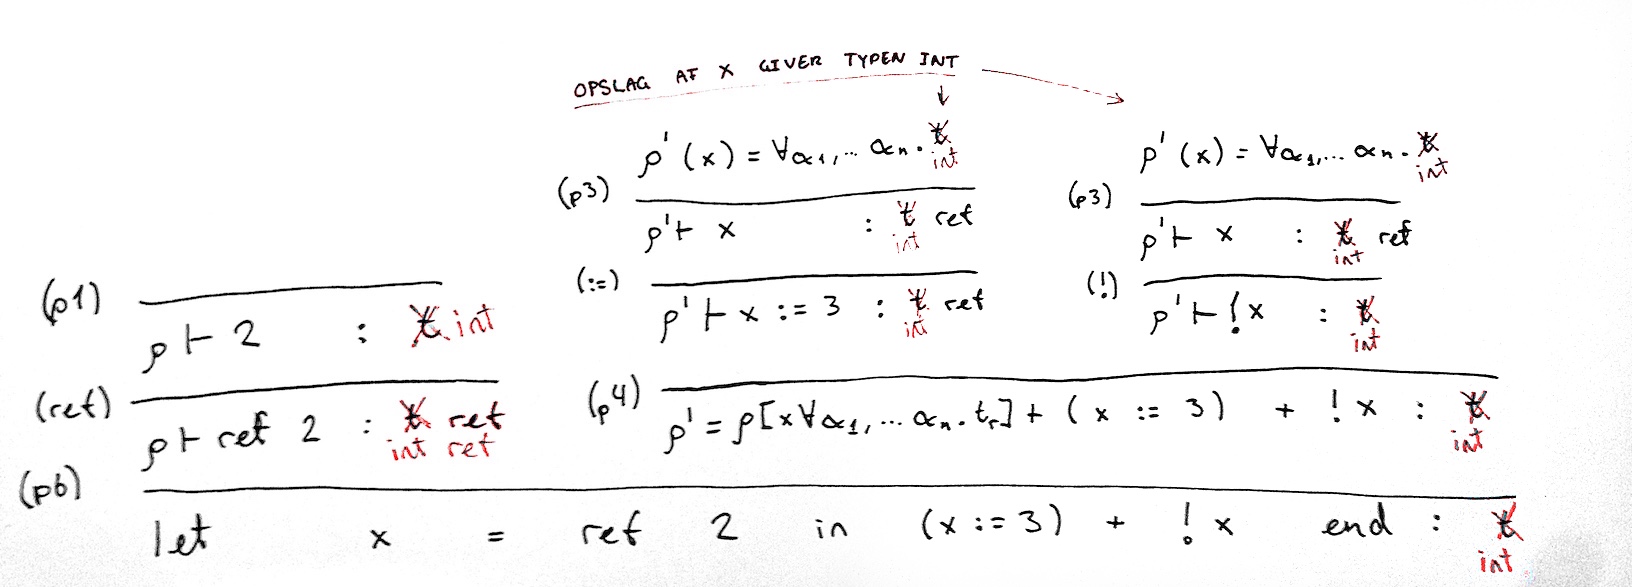 OPSLAG AF X GIVER TYPEN INT
ρ'(x) = ∀α₁,... αₙ. t int
ρ'(x) = ∀α₁,... αₙ. t int
(p3)
(p3)
ρ' ⊢ x : t ref
int
ρ' ⊢ x : t ref
int
(:=)
(!)
ρ' ⊢ x := 3 : t ref
int
ρ' ⊢ ! x : t
int
(p1)
ρ ⊢ 2 : t int
(ref)
ρ ⊢ ref 2 : t ref
int ref
(p4)
ρ' = ρ[x ∀α₁,... αₙ. tᵣ] ⊢ (x := 3) + ! x : t
int
(p6)
let x = ref 2 in (x := 3) + ! x end : t
int